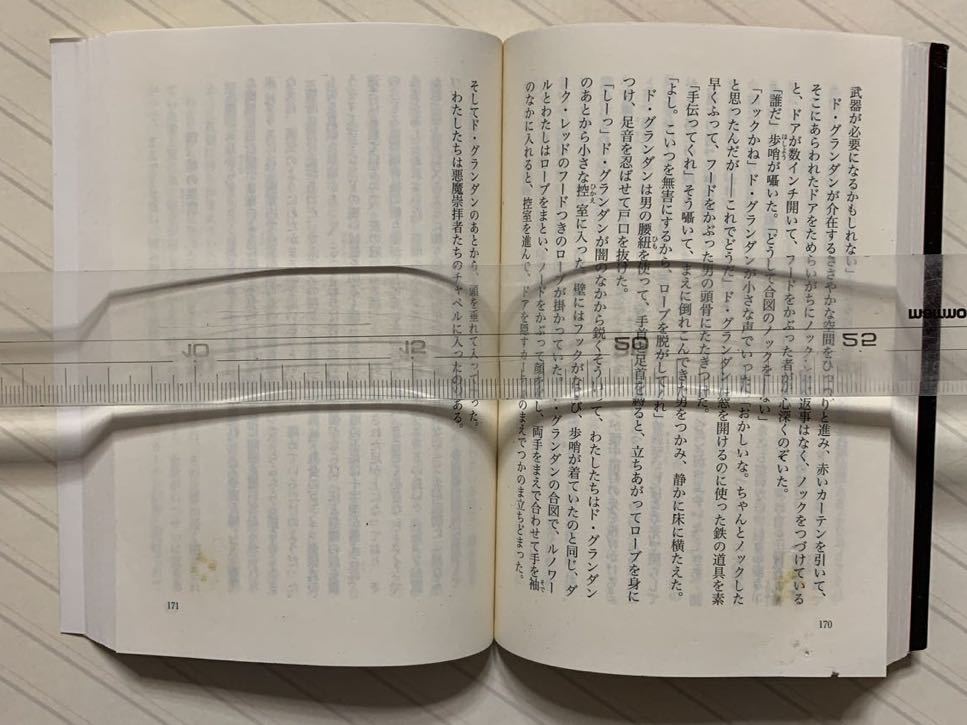 武器が必要になるかもしれない」
ド・グランダンが介在するささやかな空間をひっそりと進み、赤いカーテンを引いて、
そこにあらわれたドアをためらいがちにノック 返事はなく、ノックをつづけている
と、ドアが数インチ開いて、フードをかぶった者が 心深くのぞいた。
「誰だ」歩哨が囁いた。「どうして合図のノックを ない」
「ノックかね」ド・グランダンが小さな声でいった。 おかしいな。ちゃんとノックした
と思ったんだが――これでどうだ」ド・グランダン 窓を開けるのに使った鉄の道具を素
早くふって、フードをかぶった男の頭骨にたたきつけた。
「手伝ってくれ」そう囁いて、まえに倒れこんできた男をつかみ、静かに床に横たえた。
「よし。こいつを無害にするから、ローブを脱がしてくれ」
ド・グランダンは男の腰紐を使って、手首と足首を縛ると、立ちあがってローブを身に
つけ、足音を忍ばせて戸口を抜けた。
「しーっ」ド・グランダンが闇のなかから鋭くそういって、わたしたちはド・グランダン
のあとから小さな控室に入った。壁にはフックがならび、歩哨が着ていたのと同じ、ダ
ーク・レッドのフードつきのローブが掛かっていた。 ・グランダンの合図で、ルノワー
ルとわたしはローブをまとい、フードをかぶって顔を し、両手をまえで合わせて手を袖
のなかに入れると、控室を進んで、ドアを隠すカーテンのまえでつかのま立ちどまった。
そしてド・グランダンのあとから、頭を垂れて入っていった。
わたしたちは悪魔崇拝者たちのチャペルに入ったのである。
170
171
10
12
50
52